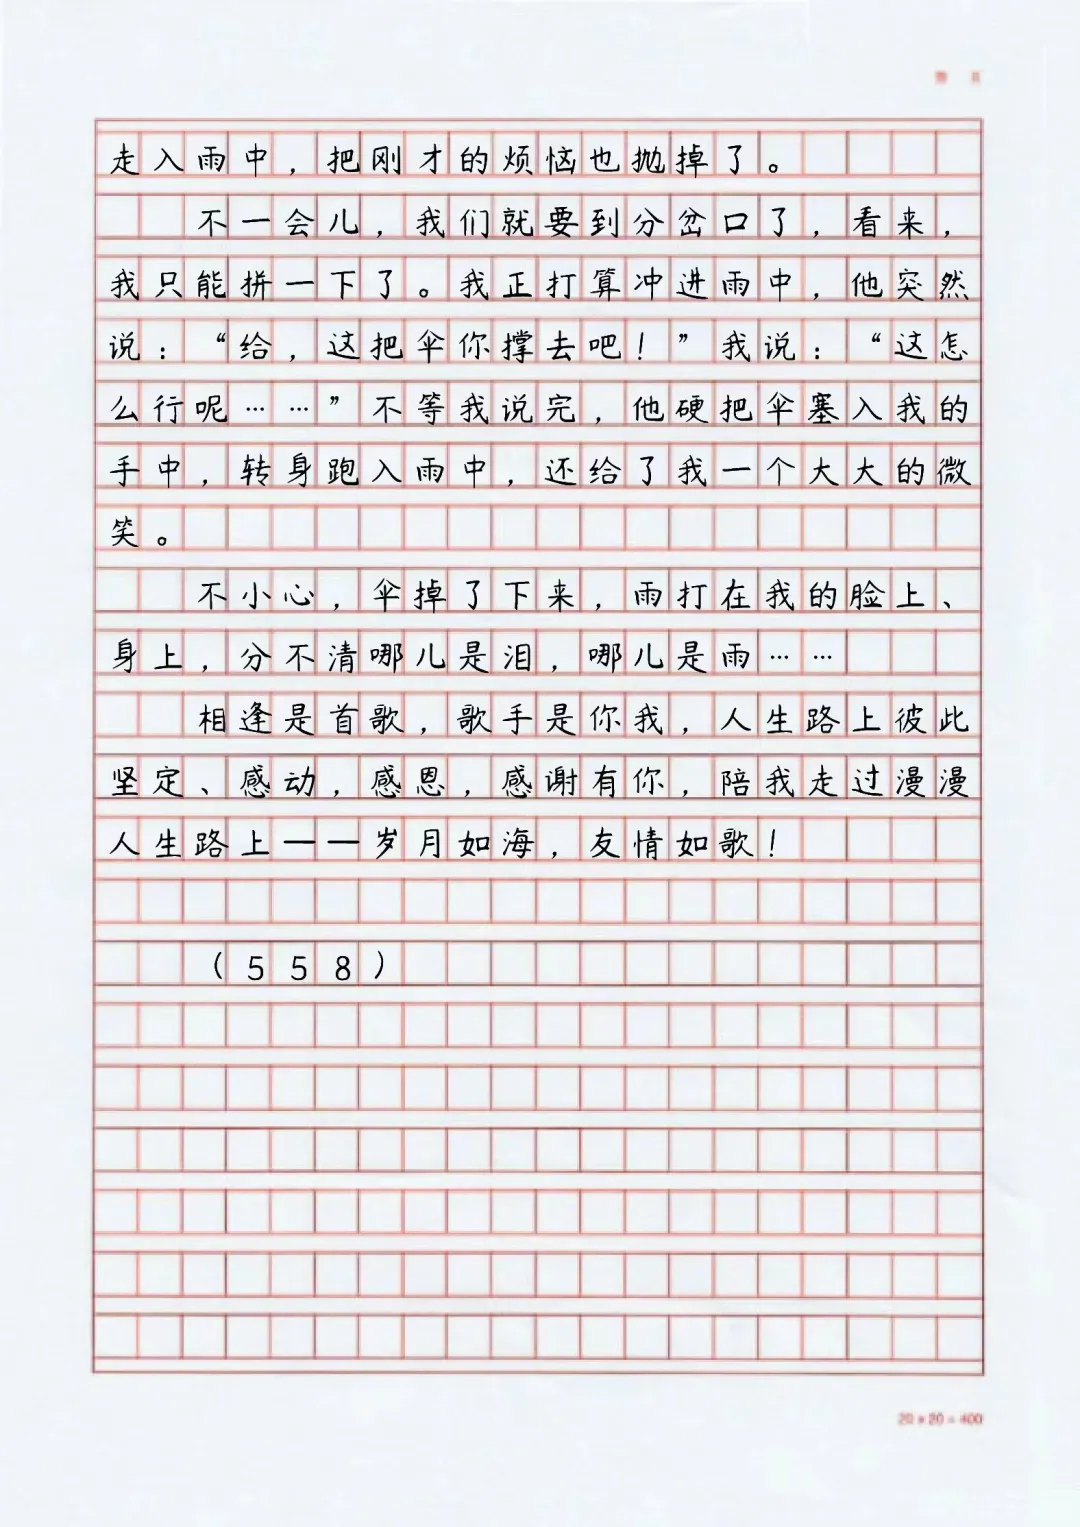 走入雨中，把刚才的烦恼也抛掉了。
不一会儿，我们就要到分岔口了，看来，
我只能拼一下了。我正打算冲进雨中，他突然
说：“给，这把伞你撑去吧！”我说：“这怎
么行呢……”不等我说完，他硬把伞塞入我的
手中，转身跑入雨中，还给了我一个大大的微
笑。
不小心，伞掉了下来，雨打在我的脸上、
身上，分不清哪儿是泪，哪儿是雨……
相逢是首歌，歌手是你我，人生路上彼此
坚定、感动，感恩，感谢有你，陪我走过漫漫
人生路上——岁月如海，友情如歌！
（558）
20×20=400